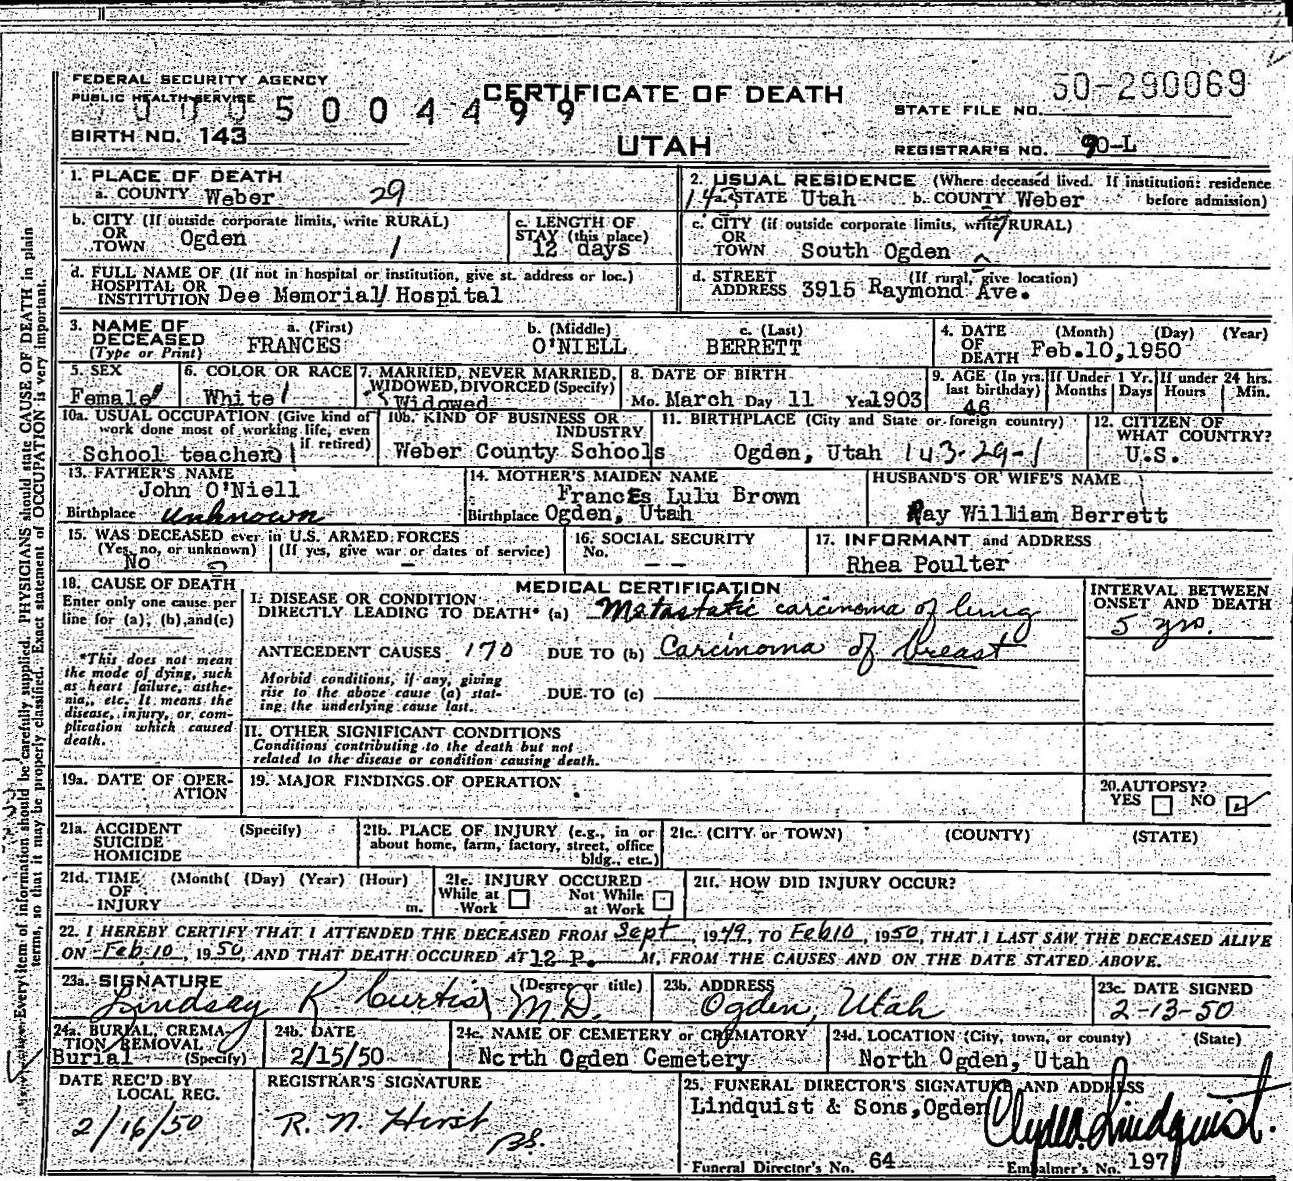 FEDERAL SECURITY AGENCY
PUBLIC HEALTH SERVICE
5004499
BIRTH NO. 143
CERTIFICATE OF DEATH
UTAH
STATE FILE NO. 50-290069
REGISTRAR'S NO. 90-L
1. PLACE OF DEATH
a. COUNTY Weber 29
2. USUAL RESIDENCE (Where deceased lived. If institution: residence before admission)
a. STATE Utah b. COUNTY Weber
b. CITY (If outside corporate limits, write RURAL)
OR TOWN Ogden 1
c. LENGTH OF STAY (this place)
12 days
c. CITY (if outside corporate limits, write RURAL)
OR TOWN South Ogden
d. FULL NAME OF (If not in hospital or institution, give st. address or loc.)
HOSPITAL OR INSTITUTION Dee Memorial Hospital
d. STREET ADDRESS (If rural, give location)
3915 Raymond Ave.
3. NAME OF DECEASED (Type or Print)
a. (First) b. (Middle) c. (Last)
FRANCES O'NIELL BERRETT
4. DATE OF DEATH (Month) (Day) (Year)
Feb.10,1950
5. SEX
Female
6. COLOR OR RACE
White
7. MARRIED, NEVER MARRIED, WIDOWED, DIVORCED (Specify)
Widowed
8. DATE OF BIRTH
Mo. March Day 11 Year 1903
9. AGE (In yrs. last birthday)
46
If Under 1 Yr. Months Days
If under 24 hrs. Hours Min.
10a. USUAL OCCUPATION (Give kind of work done most of working life, even if retired)
School teacher
10b. KIND OF BUSINESS OR INDUSTRY
Weber County Schools
11. BIRTHPLACE (City and State or foreign country)
Ogden, Utah 143-29-1
12. CITIZEN OF WHAT COUNTRY?
U.S.
13. FATHER'S NAME
John O'Niell
Birthplace unknown
14. MOTHER'S MAIDEN NAME
Frances Lulu Brown
Birthplace Ogden, Utah
HUSBAND'S OR WIFE'S NAME
Ray William Berrett
15. WAS DECEASED ever in U.S. ARMED FORCES
(Yes, no, or unknown) (If yes, give war or dates of service)
No -
16. SOCIAL SECURITY
No. --
17. INFORMANT and ADDRESS
Rhea Poulter
18. CAUSE OF DEATH
Enter only one cause per line for (a), (b), and (c)
*This does not mean the mode of dying, such as heart failure, asthenia, etc. It means the disease, injury, or complication which caused death.
MEDICAL CERTIFICATION
I. DISEASE OR CONDITION DIRECTLY LEADING TO DEATH* (a) Metastatic carcinoma of lung
ANTECEDENT CAUSES 170 DUE TO (b) Carcinoma of breast
Morbid conditions, if any, giving rise to the above cause (a) stating the underlying cause last.
DUE TO (c)
INTERVAL BETWEEN ONSET AND DEATH
5 yrs.
II. OTHER SIGNIFICANT CONDITIONS
Conditions contributing to the death but not related to the disease or condition causing death.
19a. DATE OF OPERATION
19. MAJOR FINDINGS OF OPERATION
20. AUTOPSY?
YES NO
21a. ACCIDENT SUICIDE HOMICIDE (Specify)
21b. PLACE OF INJURY (e.g., in or about home, farm, factory, street, office bldg., etc.)
21c. (CITY or TOWN) (COUNTY) (STATE)
21d. TIME OF INJURY (Month( (Day) (Year) (Hour) m.
21e. INJURY OCCURED
While at Work Not While at Work
21f. HOW DID INJURY OCCUR?
22. I HEREBY CERTIFY THAT I ATTENDED THE DECEASED FROM Sept, 1949, TO Feb 10, 1950, THAT I LAST SAW THE DECEASED ALIVE
ON Feb. 10, 1950, AND THAT DEATH OCCURED AT 12 P. M, FROM THE CAUSES AND ON THE DATE STATED ABOVE.
23a. SIGNATURE (Degree or title)
Lindsay R Curtis M.D.
23b. ADDRESS
Ogden, Utah
23c. DATE SIGNED
2-13-50
24a. BURIAL, CREMATION REMOVAL (Specify)
Burial
24b. DATE
2/15/50
24c. NAME OF CEMETERY or CREMATORY
North Ogden Cemetery
24d. LOCATION (City, town, or county) (State)
North Ogden, Utah
DATE REC'D BY LOCAL REG.
2/16/50
REGISTRAR'S SIGNATURE
R. N. Hirst
25. FUNERAL DIRECTOR'S SIGNATURE AND ADDRESS
Lindquist & Sons, Ogden
Funeral Director's No. 64
Embalmer's No. 197
Every item of information should be carefully supplied. PHYSICIANS should state CAUSE OF DEATH in plain
terms, so that it may be properly classified. Exact statement of OCCUPATION is very important.